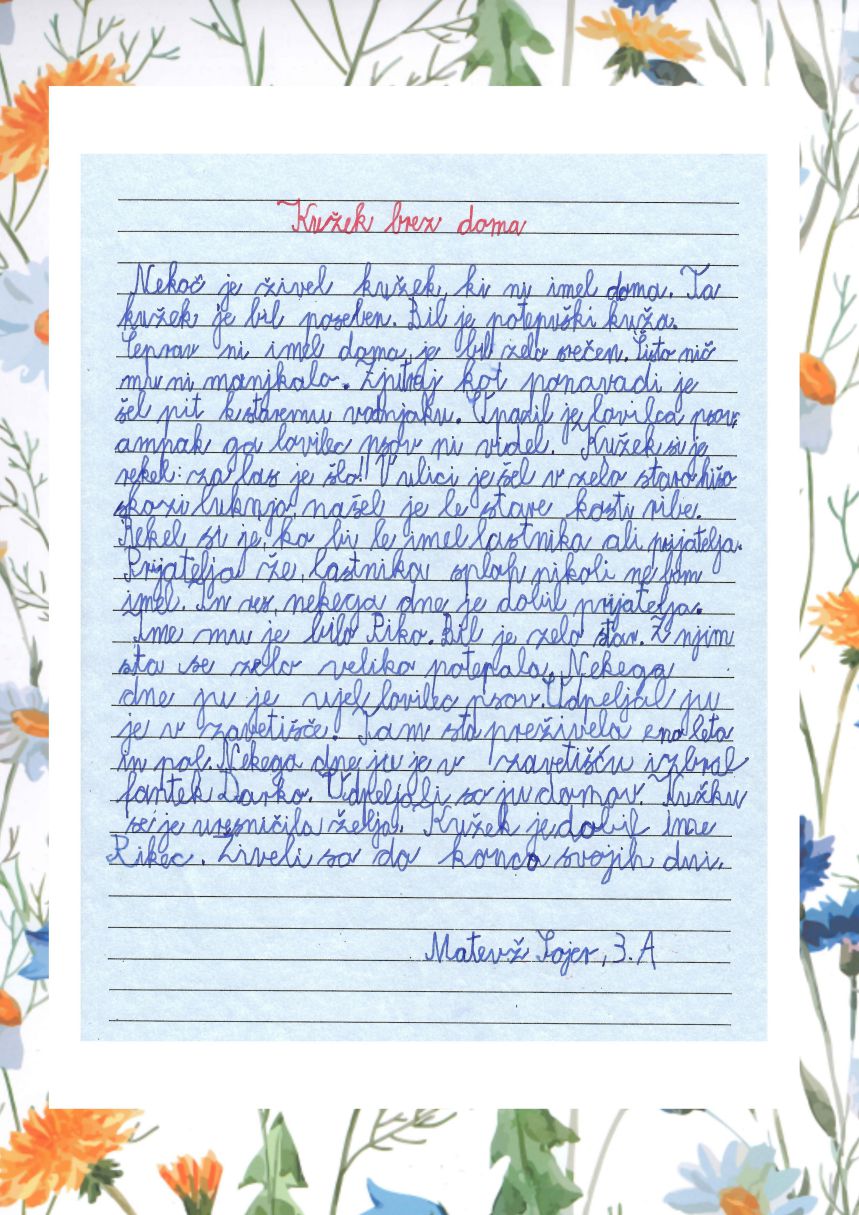 Kužek brez doma
Nekoč je živel kužek, ki ni imel doma. Ta
kužek je bil poseben. Bil je potepuški kuža.
Čeprav ni imel doma, je bil zelo srečen. Čisto nič
mu ni manjkalo. Zjutraj kot ponavadi je
šel pit k staremu vodnjaku. Opazil je lovilca psov,
ampak ga lovilec psov ni videl. Kužek si je
rekel: za las je šlo!! V ulici je šel v zelo staro hišo
skozi luknjo, našel je le stare kosti ribe.
Rekel si je, ko bi le imel lastnika ali prijatelja.
Prijatelja že, lastnika sploh nikoli ne bom
imel. In res, nekega dne je dobil prijatelja.
Ime mu je bilo Riko. Bil je zelo star. Z njim
sta se zelo veliko potepala. Nekega
dne ju je ujel lovilec psov. Odpeljal ju
je v zavetišče. Tam sta preživela eno leto
in pol. Nekega dne ju je v zavetišču izbral
fantek Darko. Odpeljali so ju domov. Kužku
se je uresničila želja. Kužek je dobil ime
Rikec. Živeli so do konca svojih dni.
Matevž Sojer, 3. A